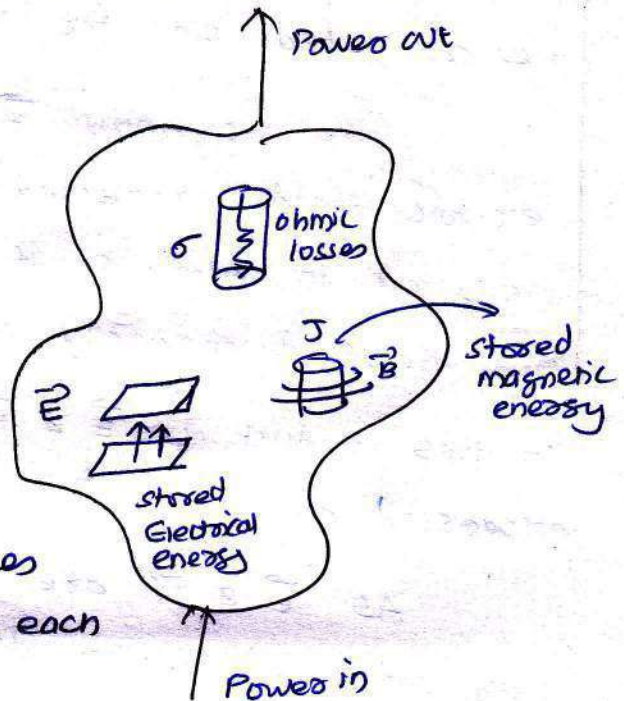 Power out
σ
ohmic
losses
J
B
stored
magnetic
energy
E
stored
Electrical
energy
es
each
Power in